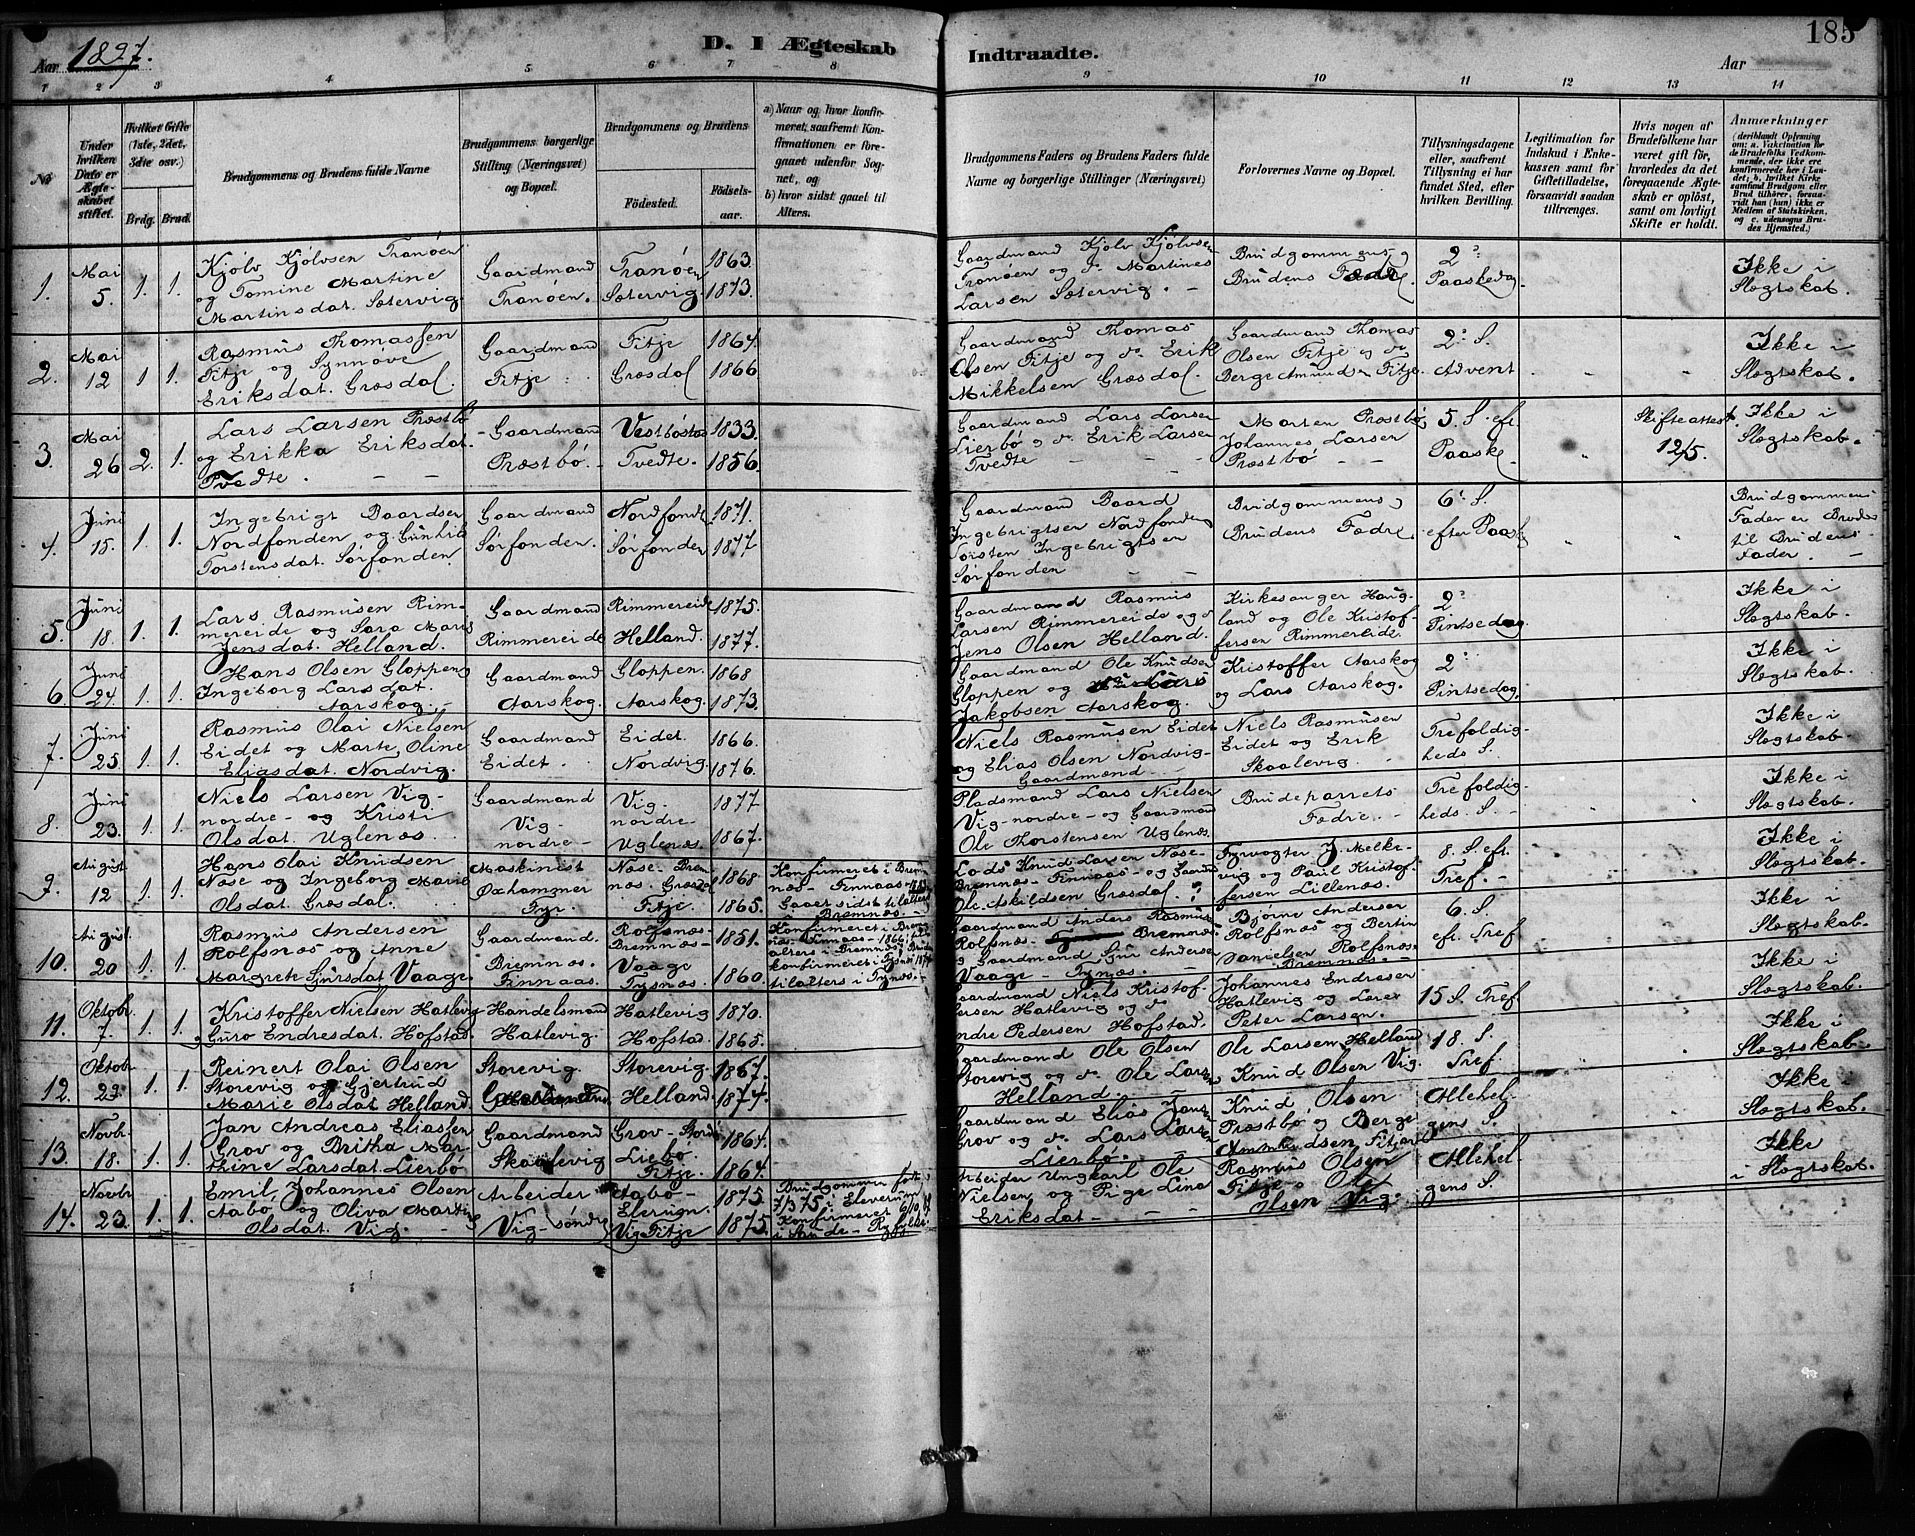 Aar 1897.
D. I Ægteskab
Indtraadte.
185
Aar
1 2 3 4 5 6 7 8 9 10 11 12 13 14
No
Under hvilken Dato er Ægteskabet stiftet.
Hvilket Gifte (1ste, 2det, 3die osv.)
Brdg. Brud.
Brudgommens og Brudens fulde Navne
Brudgommens borgerlige Stilling (Næringsvei) og Bopæl.
Brudgommens og Brudens
Fødested.
Fødselsaar.
a) Naar og hvor konfirmeret, saafremt Konfirmationen er foregaaet udenfor Sognet, og
b) hvor sidst gaaet til Alters.
Brudgommens Faders og Brudens Faders fulde Navne og borgerlige Stillinger (Næringsvei)
Forlovernes Navne og Bopæl.
Tillysningsdagene eller, saafremt Tillysning ei har fundet Sted, efter hvilken Bevilling.
Legitimation for Indskud i Enkekassen samt for Giftetilladelse, forsaavidt saadan tiltrænges.
Hvis nogen af Brudefolkene har været gift før, hvorledes da det foregaaende Ægteskab er opløst, samt om lovligt Skifte er holdt.
Anmærkninger
(deriblandt Oplysning om: a. Vakcination for de Brudefolks Vedkommende, der ikke ere konfirmerede her i Landet; b. hvilket Kirkesamfund Brudgom eller Brud tilhører, forsaavidt han (hun) ikke er Medlem af Statskirken, og c. udensogns Brudes Hjemsted.)
1. Mai 5. 1. 1.
Kjølv Kjølvsen Tranøen
og Tomine Martine
Martinsdat. Sætervig.
Gaardmand
Tranøen.
Tranøen 1863.
Sætervig. 1873.
Gaardmand Kjølv Kjølvsen
Tranøen og do Martines
Larsen Sætervig. -
Brudgommens og
Brudens Fædre.
2:
Paaskedag
Ikke i
Slægtskab.
2. Mai 12 1 1.
Rasmus Thomassen
Fitje og Synnøve
Eriksdat. Græsdal.
Gaardmand
Fitje
Fitje 1864
Græsdal 1866
Gaardmand Thomas
Olsen Fitje og do Erik
Mikkelsen Græsdal.
Gaardmand Thomas
Olsen Fitje og do
Berge Amundsen Fitje.
2: S.
Advent
Ikke i
Slægtskab.
3. Mai 26 2. 1.
Lars Larsen Præstbø
og Erikka Eriksdat.
Tvedte. - -
Gaardmand
Præstbø. -
Vestbøstad 1833.
Tvedte. 1856.
Gaardmand Lars Larsen
Lierbø og do Erik Larsen
Tvedte - -
Marten Præstbø,
Johannes Larsen
Præstbø - -
5. S. eft.
Paaske
Skifteattest
12/5.
Ikke i
Slægtskab.
4. Juni 15. 1. 1.
Ingebrigt Baardsen
Nordfonden og Gunhild
Torstensdat. Sørfonden
Gaardmand
Sørfonden.
Nordfonden 1871.
Sørfonden 1877
Gaardmand Baard
Ingebrigtsen Nordfonden
Torsten Ingebrigtsen
Sørfonden - -
Brudgommens og
Brudens Fædre
6: S.
efter Paaske
Brudgommens
Fader er Broder
til Brudens
Fader. -
5. Juni 18. 1. 1.
Lars Rasmusen Rim-
mereide og Sara Marie
Jensdat. Helland.
Gaardmand
Rimmereide
Rimmereide 1875.
Helland. 1877.
Gaardmand Rasmus
Larsen Rimmereide og do
Jens Olsen Helland.
Kirkesanger Haug-
land og Ole Kristof-
fersen Rimmereide.
2:
Pintsedag.
Ikke i
Slægtskab.
6 Juni 24. 1. 1.
Hans Olsen Gloppen
Ingeborg Larsdat.
Aarskog. -
Gaardmand
Aarskog.
Gloppen. 1868
Aarskog. 1873.
Gaardmand Ole Knudsen
Gloppen og do Lars
Jakobsen Aarskog.
Kristoffer Aarskog
og Lars Aarskog.
2:
Pintsedag.
Ikke i
Slægtskab.
7. Juni 25 1. 1.
Rasmus Olai Nielsen
Eidet og Marte Oline
Eliasdat. Nordvig.
Gaardmand
Eidet.
Eidet. 1866.
Nordvig. 1876.
Niels Rasmusen Eidet
og Elias Olsen Nordvig-
Gaardmænd - -
Niels Rasmusen
Eidet og Erik
Skaalevig.
Trefoldig-
heds S.
Ikke i
Slægtskab.
8. Juni 23. 1. 1.
Niels Larsen Vig-
nordre - og Kristi
Olsdat Uglenæs.
Gaardmand
Vig-
nordre -
Vig- 1877
nordre -
Uglenæs. 1867.
Pladsmand Lars Nielsen
Vig-nordre - og Gaardmand
Ole Thorstensen Uglenæs.
Brudeparrets
Fædre. -
Trefoldig-
heds. S. -
Ikke i
Slægtskab.
9. August 12 1. 1.
Hans Olai Knudsen
Næse og Ingeborg Marie
Olsdat. Græsdal.
Maskinist
Oxhammer
Tyr.
Næse - Brem-
næs. Græsdal 1868
Fitje. 1865.
Konfirmeret i Brem-
næs - Finnaas -
Gaaet sidst til alters
Bremnæs -
Lods Knud Larsen Næse-
Bremnæs - Finnaas - og Gaardm
Ole Askildsen Græsdal.
Fyrvogter J. Melke-
vig og Paul Kristof-
fersen Lillenæs.
8. S. eft.
Tref. -
Ikke i
Slægtskab.
10. August 20 1. 1.
Rasmus Andersen
Rolfsnæs og Anne
Margrete Sjursdat Vaage
Gaardmand.
Bremnæs.
Finnaas.
Rolfsnæs- 1851.
Bremnæs-
Vaage
Tysnæs. 1860.
Konfirmeret i Brem-
næs - Finnaas - 1866.
alters i Bremnæs - Bruden
konfirmeret i Tysnæs
til alters i Tysnæs. -
Gaardmand Anders Rasmus
Rolfsnæs - Bremnæs
og Gaardmand Sjur Andersen
Vaage - Tysnæs. -
Bjørne Andersen
Rolfsnæs og Bertin
Danielsen Rolfsnæs-
Bremnæs -
6. S.
eft. Tref.
Ikke i
Slægtskab.
11. Oktobr. 7. 1. 1.
Kristoffer Nielsen Hatlevig
og Guro Endresdat. Hofstad.
Handelsmand
Hatlevig.
Hatlevig 1870.
Hofstad. 1865.
Gaardmand Niels Kristof-
fersen Hatlevig og do
Endre Pedersen Hofstad.
Johannes Endresen
Hatlevig og Lærer
Peter Larsen.
15 S. Tref
Ikke i
Slægtskab.
12. Oktobr. 23. 1. 1.
Reinert Olai Olsen
Storevig og Gjertrud
Marie Olsdat Helland.
Storevig.
Storevig. 1867.
Helland. 1874.
Gaardmand Ole Olsen
Storevig og do Ole Larsen
Helland. -
Ole Larsen Helland
Knud Olsen Vig.
18. S.
Tref.
Ikke i
Slægtskab.
13. Novbr. 18. 1. 1.
Jan Andreas Eliassen
Grov og Britha Mar-
thine Larsdat. Lierbø
Gaardmand
Skaalevig
Grov - Stord 1864.
Lierbø.
Fitje. 1864.
Gaardmand Elias Jansen
Grov og do Lars Larsen
Lierbø. - -
Knud Olsen
Præstbø og Berge
Ammundsen Fitjar
Allehel-
gens S.
Ikke -
Slægtskab.
14. Novbr. 23. 1. 1.
Emil Johannes Olsen
Aabø og Oliva Martine
Olsdat. Vig. -
Arbeider
Vig - søndre
Aabø - 1875.
Elverum.
Vig Fitje 1875.
Brudgommen født
7/3 75 i Elverum
Konfirmeret
i Sande - Ryfylke.
Arbeider Ungkarl Ole
Nielsen og Pige Lina
Eriksdat - - -
Rasmus Olsen
Fitje. Ole
Olsen Vig.
Allehel-
gens S.
Ikke
i Slægtskab.